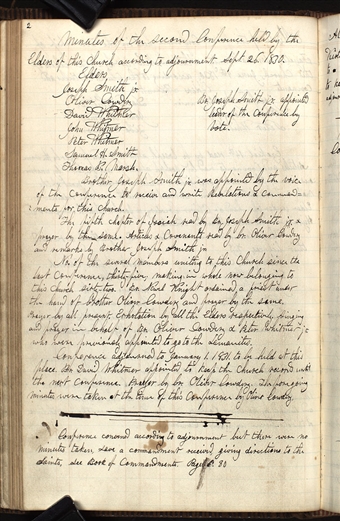 2
Minutes of the second Conference held by the
Elders of this Church according to adjournment Sept 26. 1830.
Elders
Joseph Smith jr.
Oliver Cowdery
David Whitmer
John Whitmer
Peter Whitmer
Samuel H. Smith
Thomas B. Marsh.
Br. Joseph Smith jr. appointed
leader of the Conference by
vote.
Brother Joseph Smith jr. was appointed by the voice
of the Conference to receive and write Revelations & command-
ments for this Church.
The fifth chapter of Isaiah read by Br. Joseph Smith jr. &
prayer by the same. Articles & Covenants read by br. Oliver Cowdery
and remarks by Brother Joseph Smith jr.
No. of the several members uniting to this Church since the
last Conference, thirty-five, making in whole now belonging to
this Church sixty-two. Br. Newel Knight ordained a priest under
the hand of Brother Oliver Cowdery and prayer by the same.
Prayer by all present. Exhortation by all the Elders respectively. Singing
and prayer in behalf of Br. Oliver Cowdery & Peter Whitmer jr.
who were previously appointed to go to the Lamanites.
Conference adjourned to January 1. 1831, to be held at this
place. Br. David Whitmer appointed to keep the Church record until
the next Conference. Prayer by br. Oliver Cowdery. The foregoing
minutes were taken at the time of this Conference by Oliver Cowdery.
Conference convened according to adjournment but there were no
minutes taken save a commandment received giving directions to the
Saints, see Book of Commandments Page 80